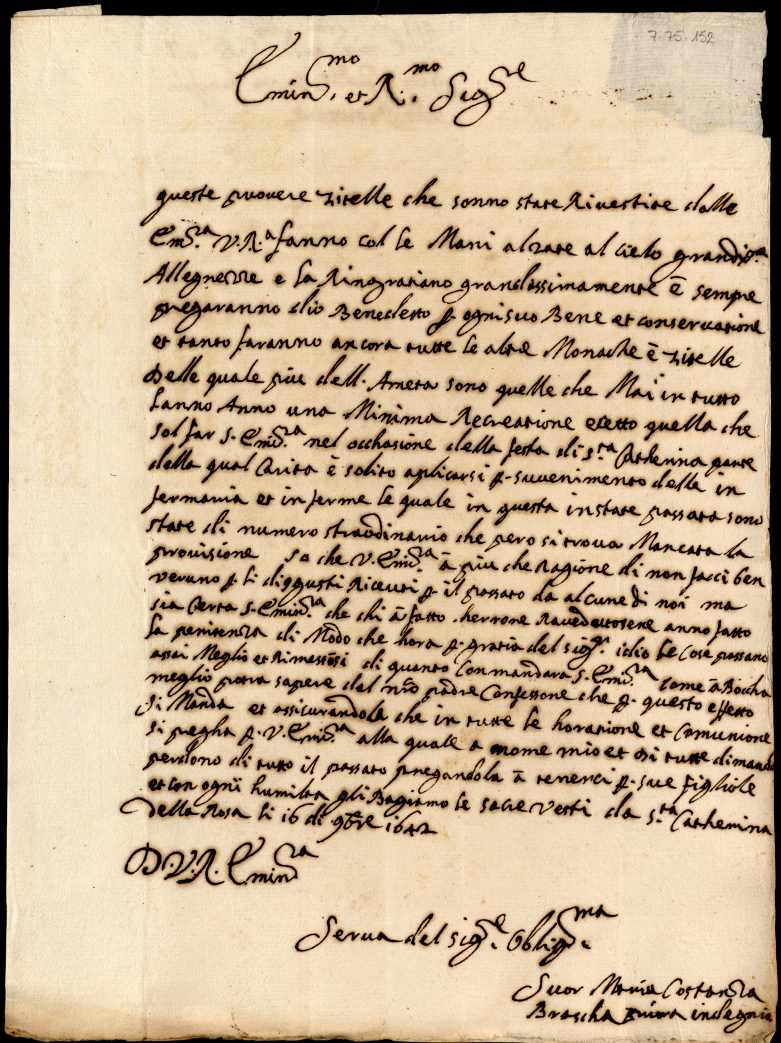 7-75-152
Emin.mo et R.mo Sig.re
queste povere zitelle che sonno state Rivestite dalle
Em.ra V.R.a fanno col le Mani alzate al cielo grandis.a
Allegrezze e la Ringratiano grandissimamente ē sempre
pregaranno dio Benedetto p. ogni suo Bene et conservatione
et tanto faranno ancora tutte le altre Monache ē zitelle
Delle quale piu dell. Ameta sono quelle che Mai in tutto
lanno Anno una Minima Recreatione ecetto quella che
sol far S. Emin.ra nel occhasione della festa di S.ta Catherina parte
della qual Carita ē solito aplicarsi p. suvenimento delle in
fermaria et in ferme le quale in questa instate passata sono
state di numero straodinario che pero si trova Mancata la
provisione so che V. Emin.ra ā piu che Ragione di non facci ben
veruno p. li disgusti Riceuti p. il passato da alcune di noi ma
sia Certa S. Emin.ra che chi ā fatto herrone Ravedutosene anno fatto
la penitenza di Modo che hora p. gratia del sig.re idio le Cose passano
assai Meglio et Rimessosi di quanto Commandara S. Emin.ra come ā Boccha
meglio potra sapere dal nro padre Confessone che p. questo effetto
si Manda et assicurandola che in tutte le horatione et Comunione
si pregha p. V. Emin.ra alla quale a nome mio et di tutte dimando
perdono di tutto il passato pregandola ā tenerci p. sue figliole
et con ogni humilta gli Bagiamo le sacre vesti da S.ta Catherina
Della Rosa li 16 di 9bre 1642
D.V.R. Emin.ra
Serva del sig.re Oblig.ma
Suor Maria Costanza
Brascha priora indegnia